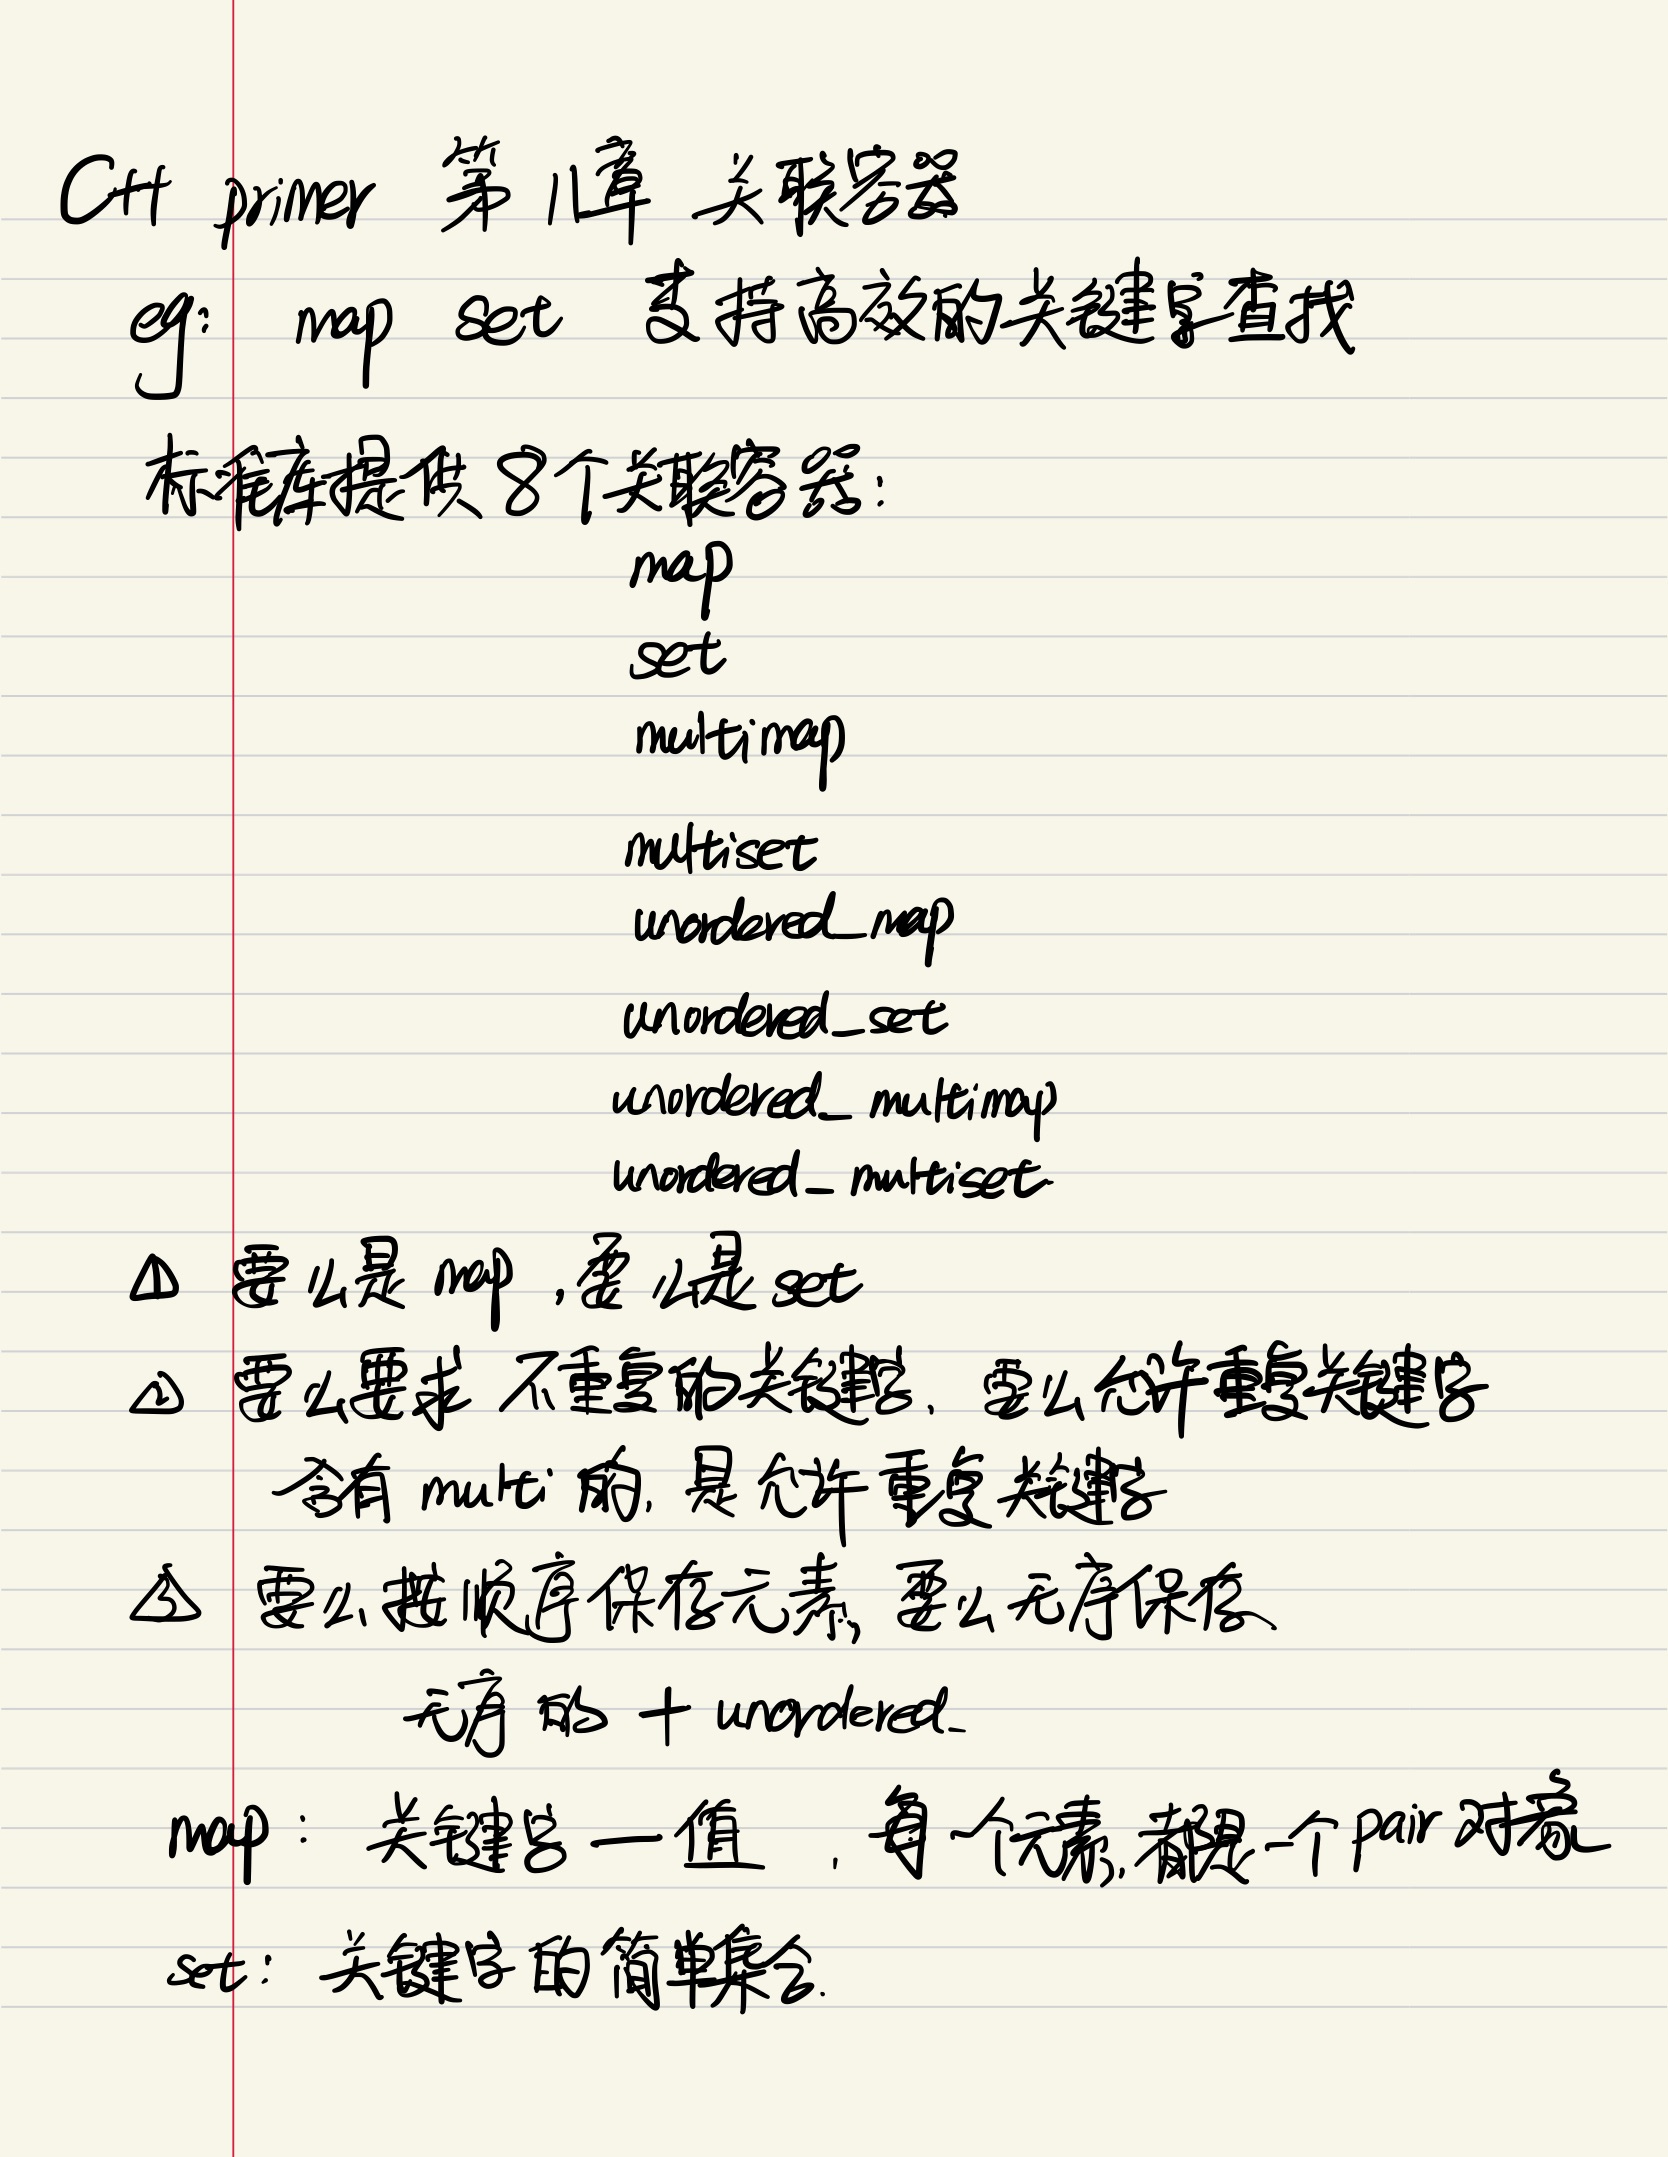 C++ primer 第11章 关联容器
eg: map set 支持高效的关键字查找
标准库提供8个关联容器:
map
set
multimap
multiset
unordered_map
unordered_set
unordered_multimap
unordered_multiset
1 要么是map,要么是set
2 要么要求不重复的关键字,要么允许重复关键字
含有multi的,是允许重复关键字
3 要么按顺序保存元素,要么无序保存
无序的 + unordered_
map: 关键字—值,每个元素,都是一个pair对象
set: 关键字的简单集合.